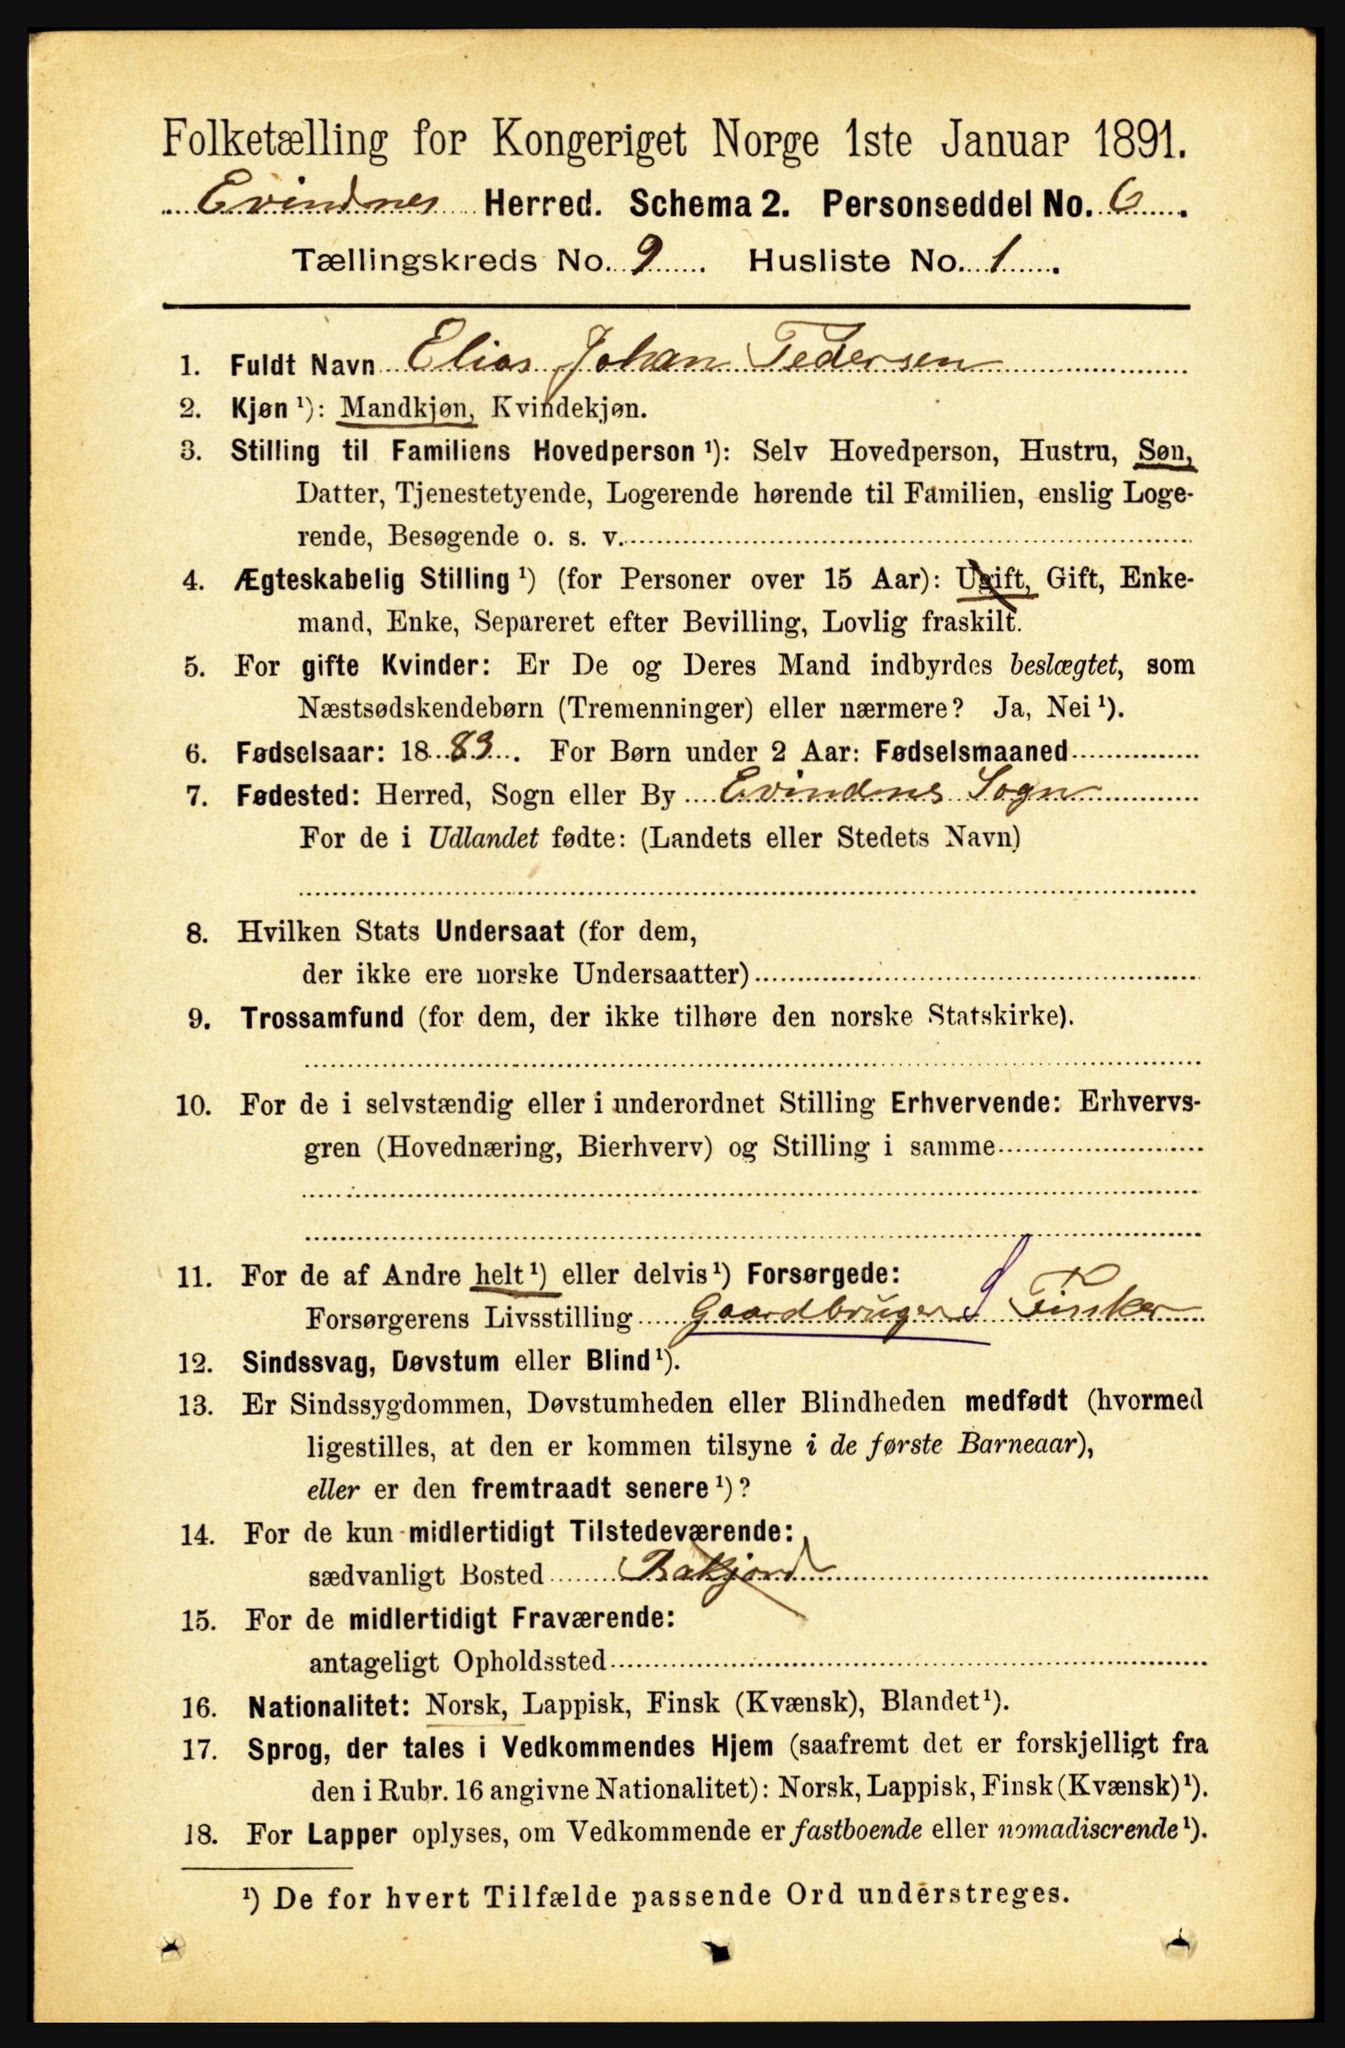 Folketælling for Kongeriget Norge 1ste Januar 1891.
Evindnes Herred. Schema 2. Personseddel No. 6.
Tællingskreds No. 9. Husliste No. 1.
1. Fuldt Navn Elias Johan Pedersen
2. Kjøn ¹): Mandkjøn, Kvindekjøn.
3. Stilling til Familiens Hovedperson ¹): Selv Hovedperson, Hustru, Søn,
Datter, Tjenestetyende, Logerende hørende til Familien, enslig Loge-
rende, Besøgende o. s. v.
4. Ægteskabelig Stilling ¹) (for Personer over 15 Aar): Ugift, Gift, Enke-
mand, Enke, Separeret efter Bevilling, Lovlig fraskilt.
5. For gifte Kvinder: Er De og Deres Mand indbyrdes beslægtet, som
Næstsødskendebørn (Tremenninger) eller nærmere? Ja, Nei ¹).
6. Fødselsaar: 1883. For Børn under 2 Aar: Fødselsmaaned
7. Fødested: Herred, Sogn eller By Evindnes Sogn
For de i Udlandet fødte: (Landets eller Stedets Navn)
8. Hvilken Stats Undersaat (for dem,
der ikke ere norske Undersaatter)
9. Trossamfund (for dem, der ikke tilhøre den norske Statskirke).
10. For de i selvstændig eller i underordnet Stilling Erhvervende: Erhvervs-
gren (Hovednæring, Bierhverv) og Stilling i samme
11. For de af Andre helt ¹) eller delvis ¹) Forsørgede:
Forsørgerens Livsstilling Gaardbruger S Fisker
12. Sindssvag, Døvstum eller Blind ¹).
13. Er Sindssygdommen, Døvstumheden eller Blindheden medfødt (hvormed
ligestilles, at den er kommen tilsyne i de første Barneaar),
eller er den fremtraadt senere ¹)?
14. For de kun midlertidigt Tilstedeværende:
sædvanligt Bosted Bakjord
15. For de midlertidigt Fraværende:
antageligt Opholdssted
16. Nationalitet: Norsk, Lappisk, Finsk (Kvænsk), Blandet ¹).
17. Sprog, der tales i Vedkommendes Hjem (saafremt det er forskjelligt fra
den i Rubr. 16 angivne Nationalitet): Norsk, Lappisk, Finsk (Kvænsk) ¹).
18. For Lapper oplyses, om Vedkommende er fastboende eller nomadiserende ¹).
¹) De for hvert Tilfælde passende Ord understreges.